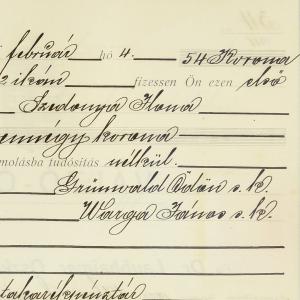 február hó 4. 54 Korona
2 ikán fizessen Ön ezen első
Szedonya Ilona
ennégy korona
molásba tudósítás nélkül.
Grünwald Ödön s. k.
Warga János s. k.
takarékpénztár